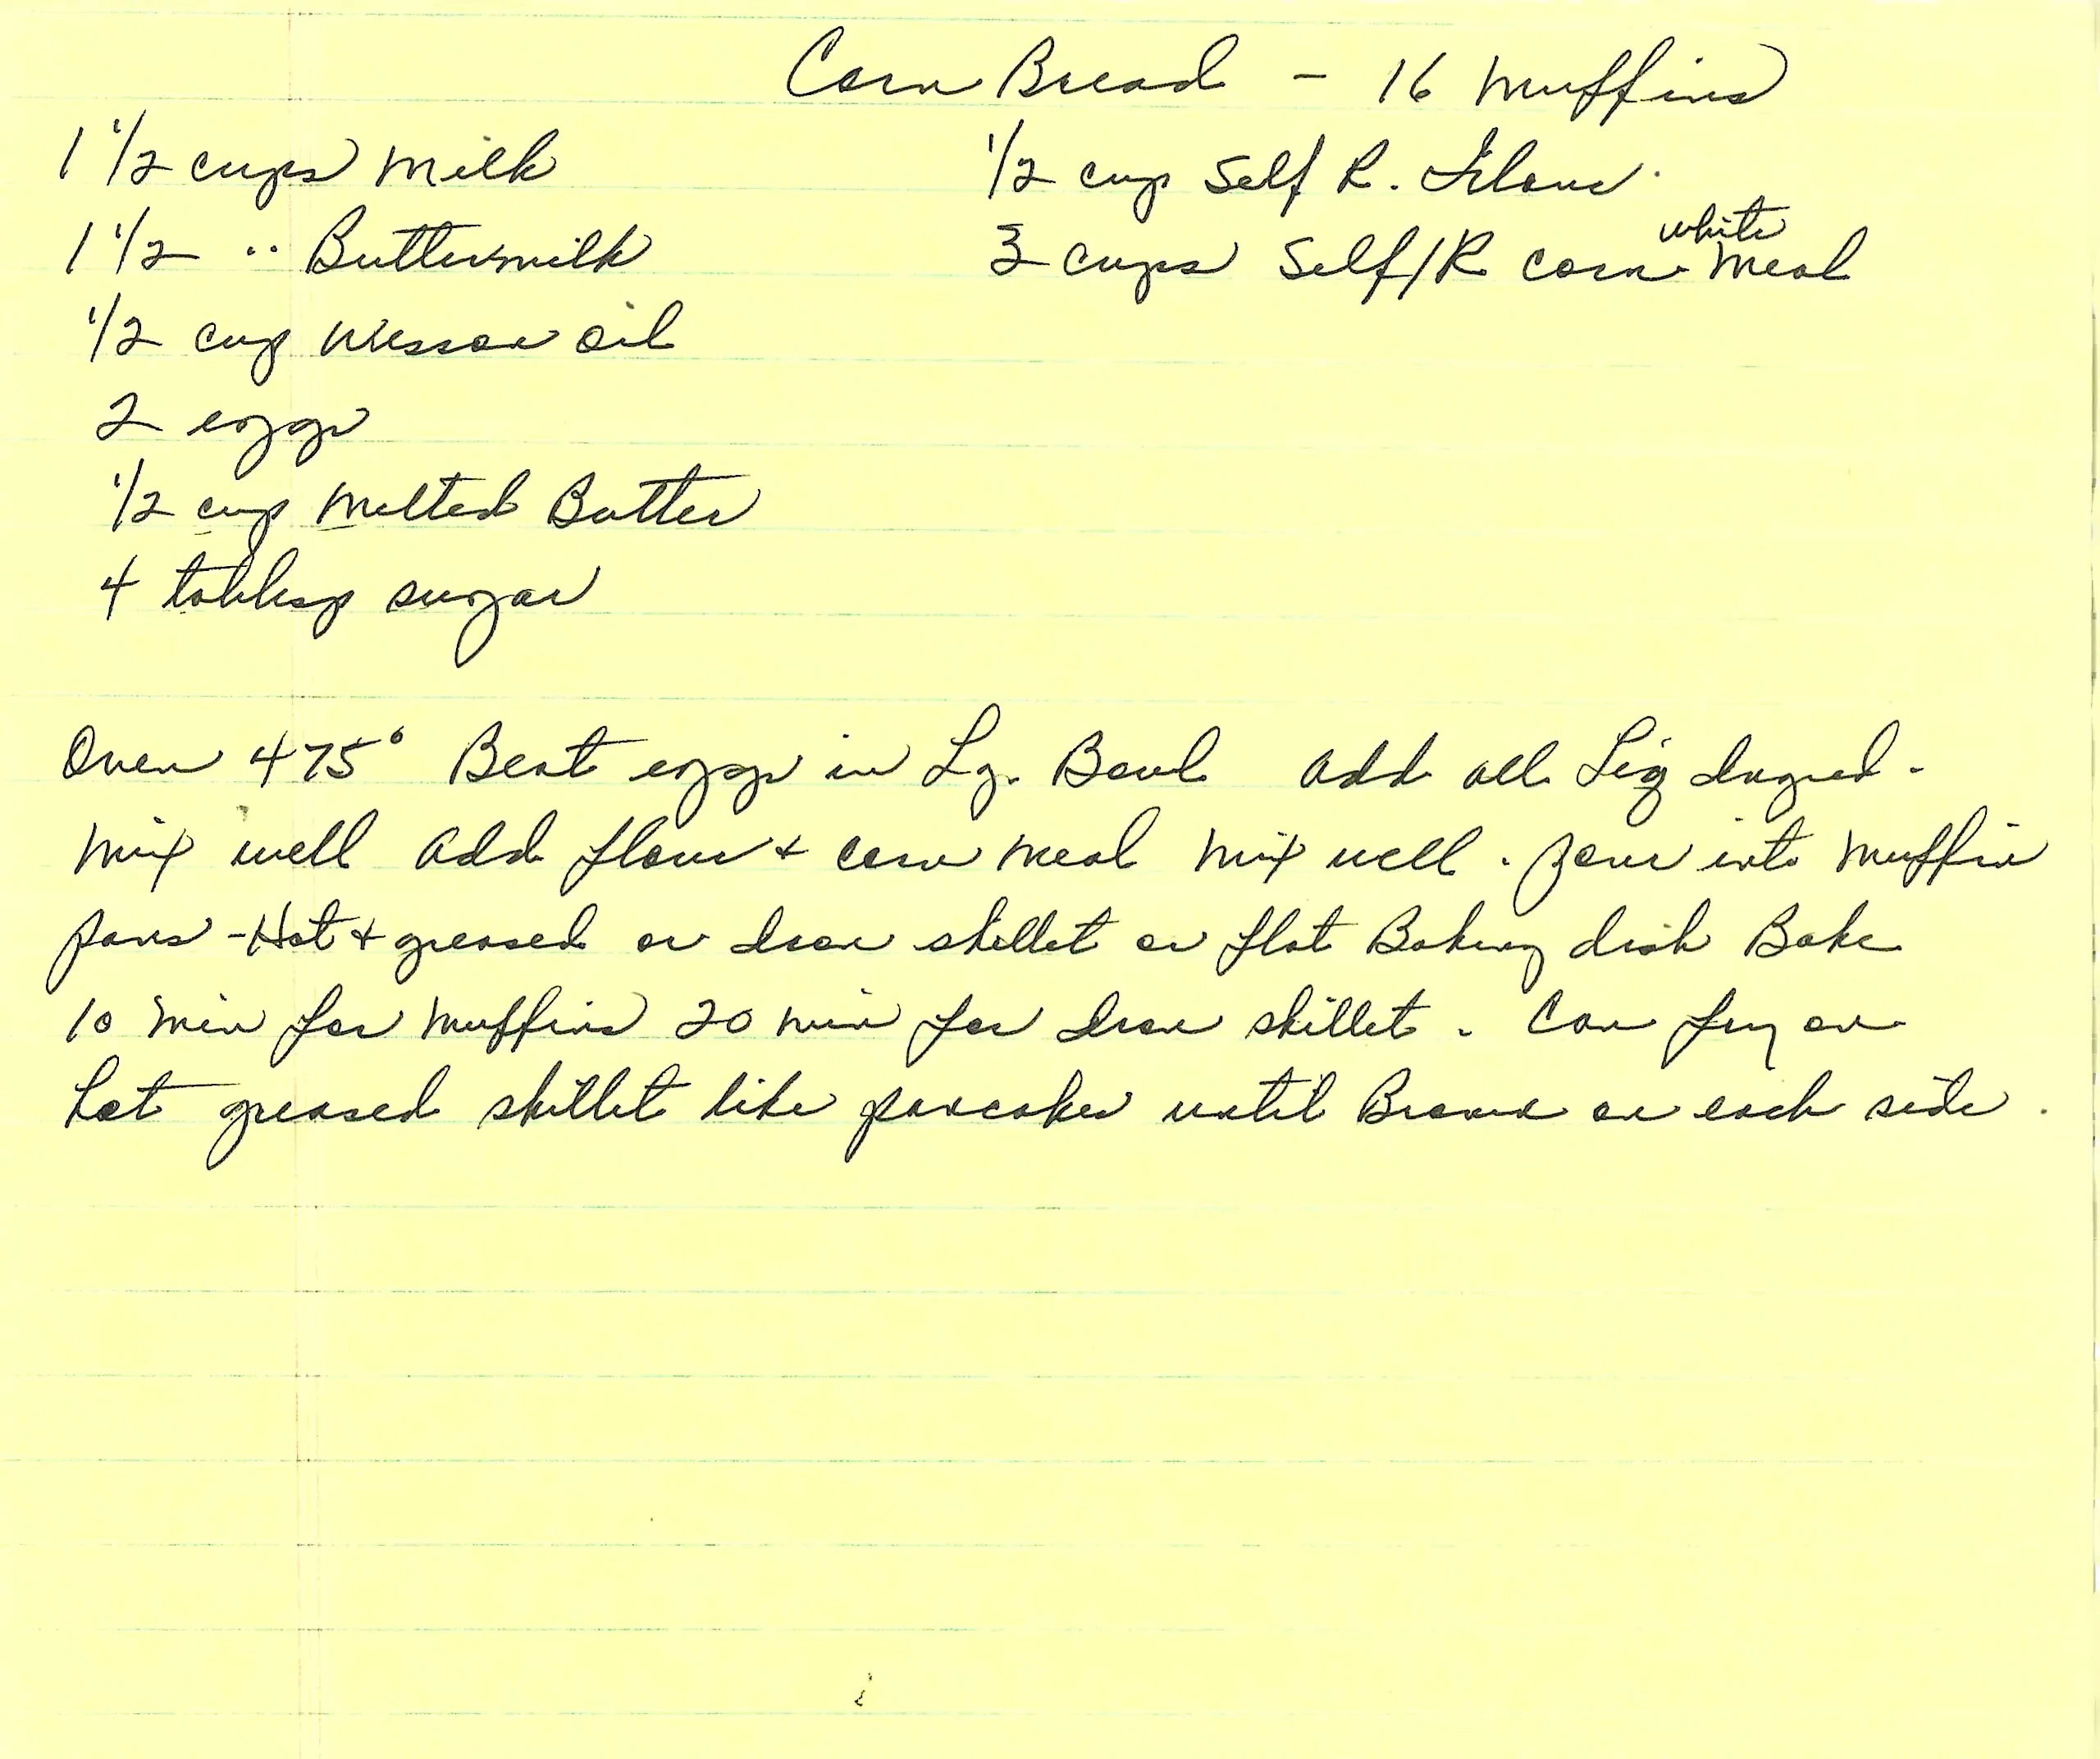 Corn Bread - 16 Muffins
1 1/2 cups Milk
1 1/2 " Buttermilk
1/2 cup Wesson oil
2 eggs
1/2 cup Melted Butter
4 tablesp sugar
1/2 cup Self R. Flour.
white
3 cups Self/R corn Meal
Oven 475° Beat eggs in Lg. Bowl add all Liq Ingred.
Mix well add flour + corn meal Mix well. pour into Muffin
pans - Hot + greased or Iron skillet or flat Baking dish Bake
10 Min for Muffins 20 min for Iron skillet. Can fry on
hot greased skillet like pancakes until Brown on each side.